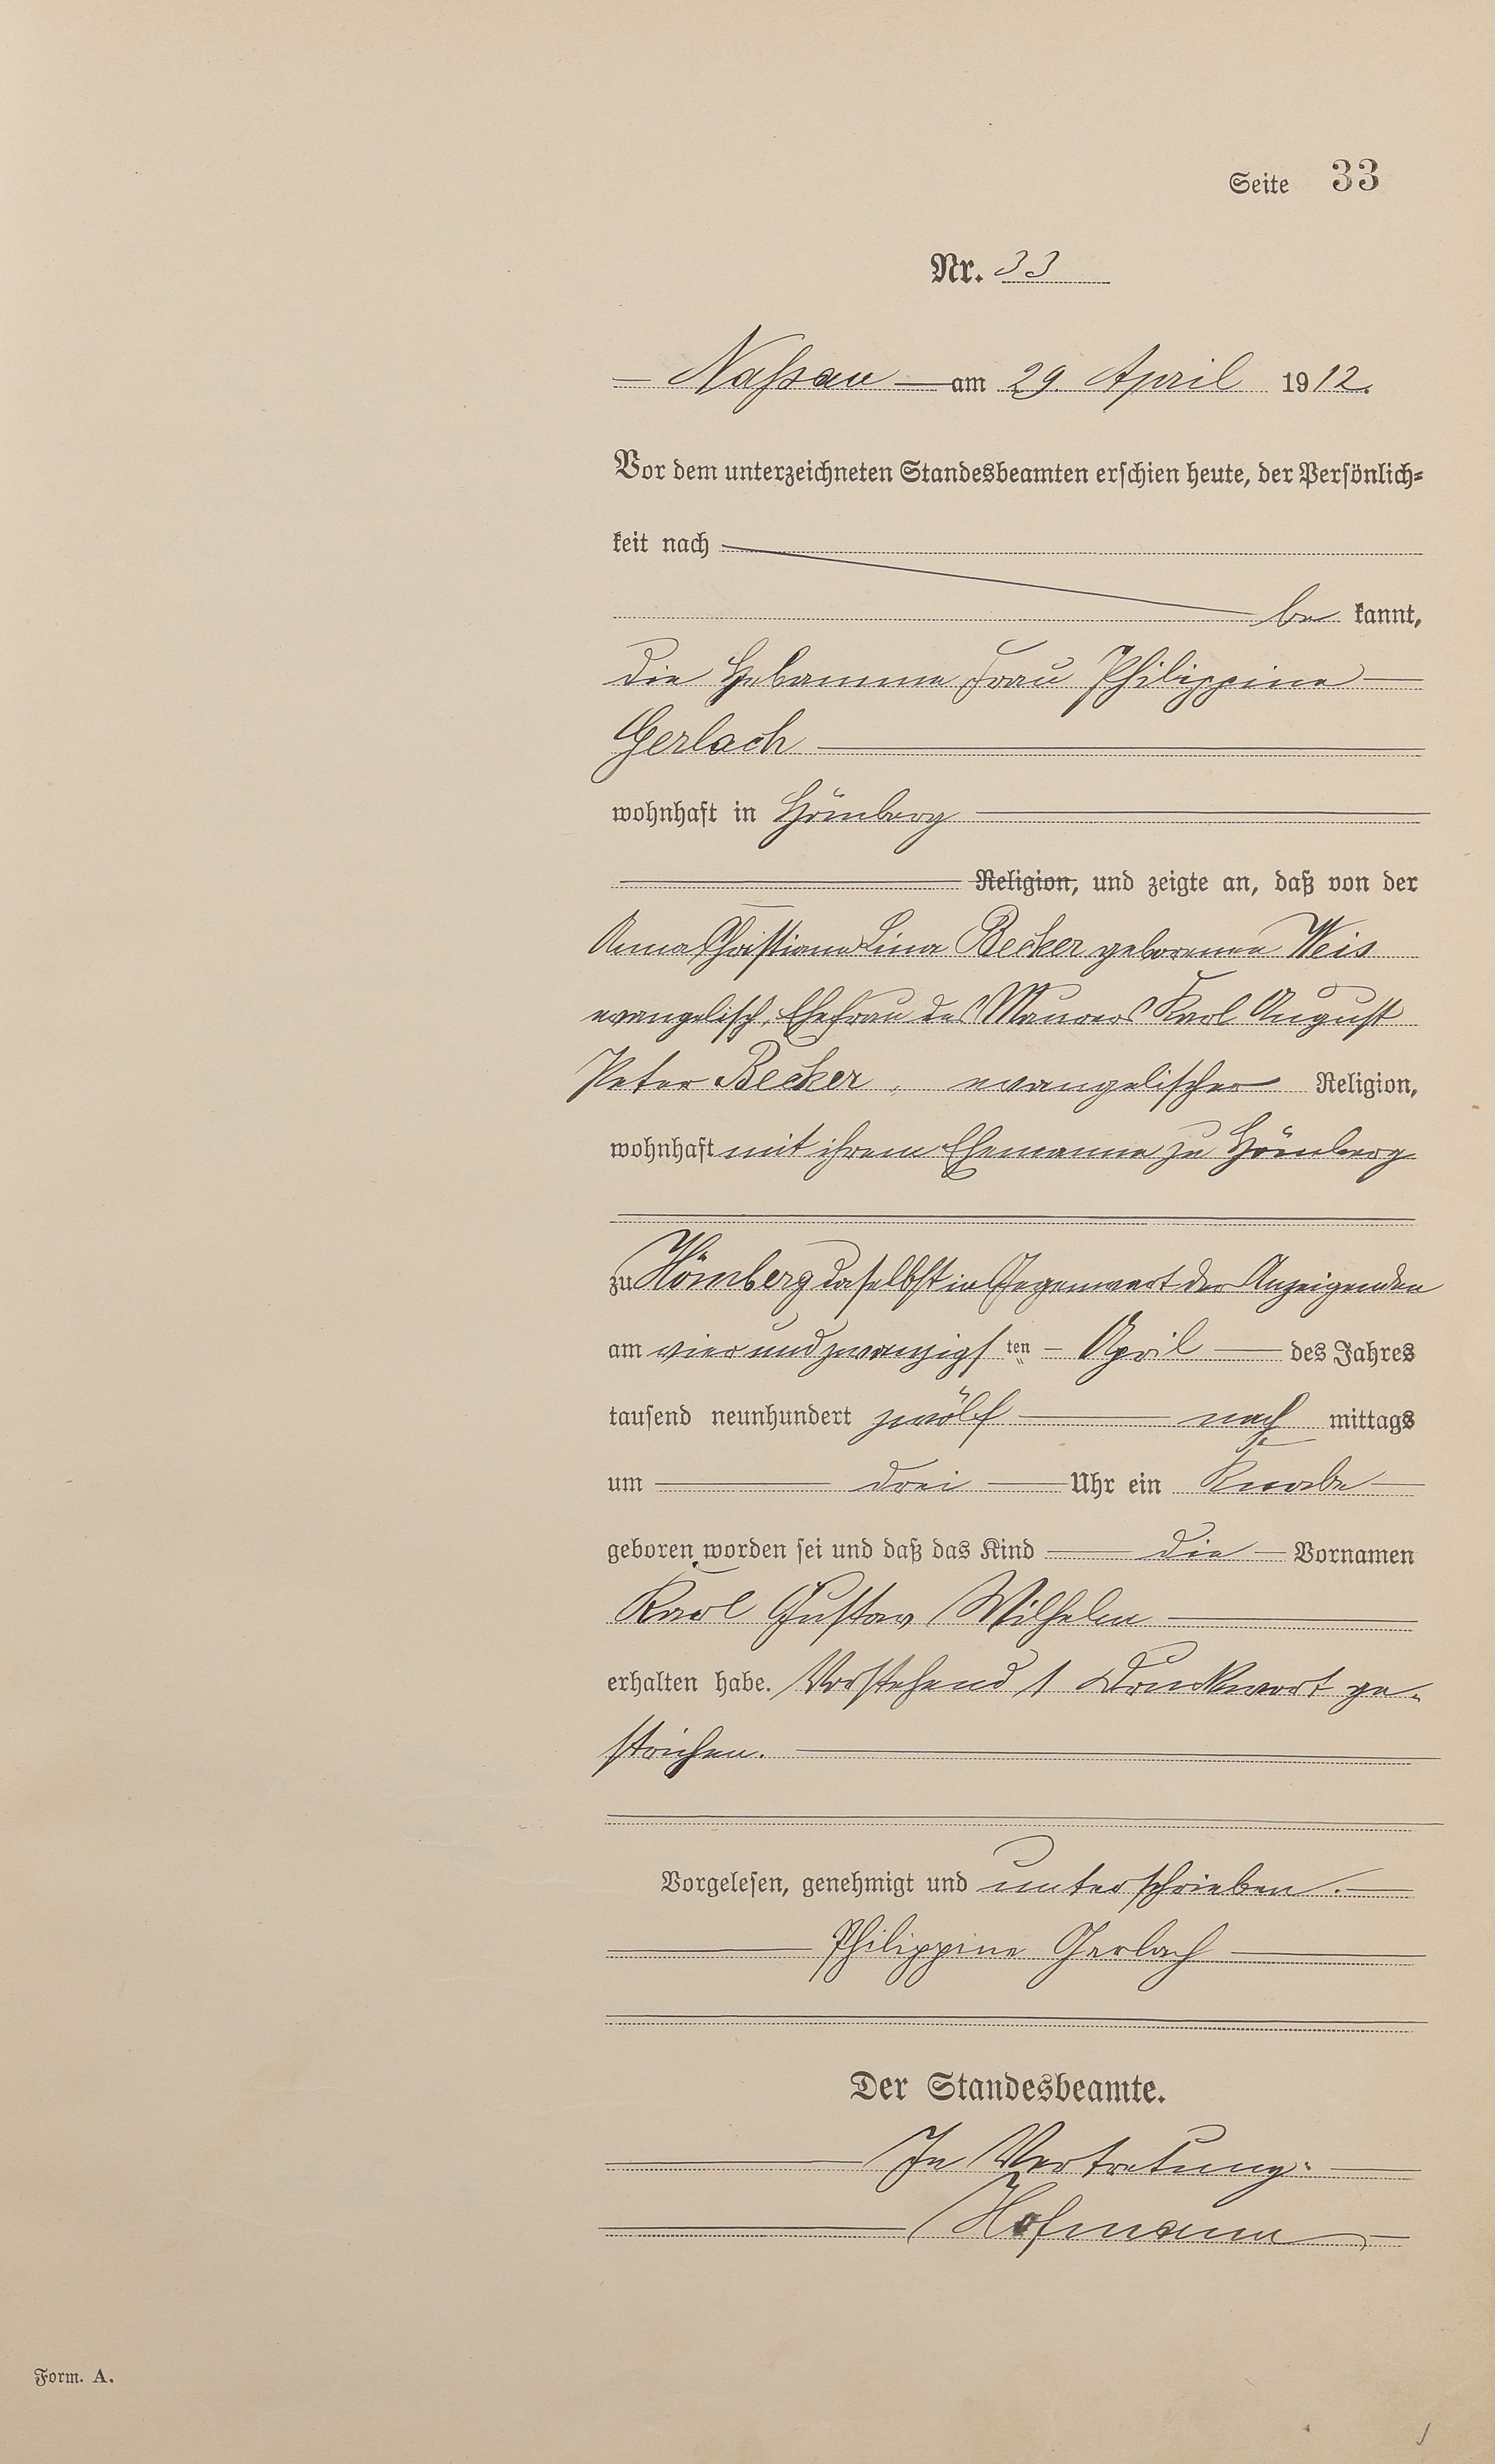 Seite 33
Nr. 33
Nassau am 29. April 1912.
Vor dem unterzeichneten Standesbeamten erschien heute, der Persönlich-
keit nach
be kannt,
die Hebamme Frau Philippine
Gerlach
wohnhaft in Hömberg
Religion, und zeigte an, daß von der
Anna Christiane Lina Becker geborenen Weis
evangelisch, Ehefrau des Maurers Karl August
Peter Becker, evangelischer Religion,
wohnhaft mit ihrem Ehemanne zu Hömberg
zu Hömberg daselbst in Gegenwart der Anzeigenden
am vier und zwanzigsten April des Jahres
tausend neunhundert zwölf nach mittags
um drei Uhr ein Knabe
geboren worden sei und daß das Kind die Vornamen
Karl Gustav Wilhelm
erhalten habe. Vorstehend 1 Druckwort ge-
strichen.
Vorgelesen, genehmigt und unterschrieben.
Philippine Gerlach
Der Standesbeamte.
In Vertretung:
Hofmann
Form. A.